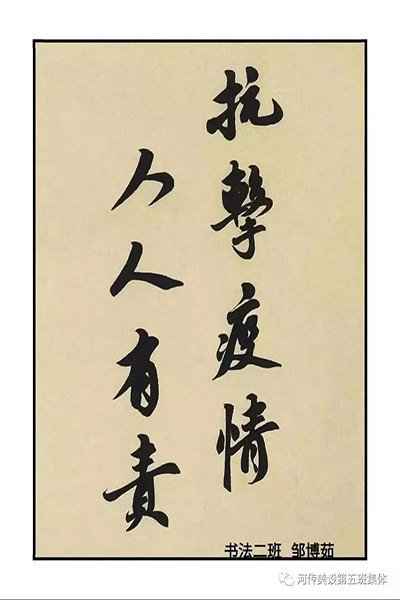 抗擊疫情
人人有責
书法二班 邹博茹
河传美设第五班集体